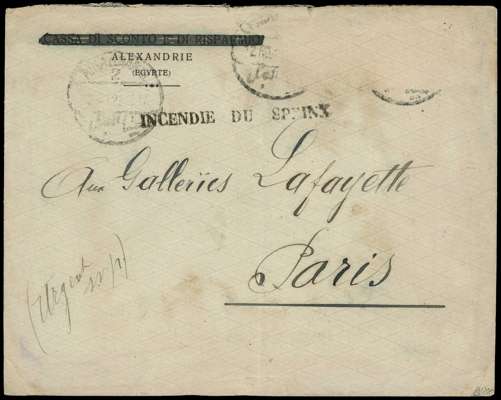 CASSA DI SCONTO E DI RISPARMIO
ALEXANDRIE
(EGYPTE)
INCENDIE DU SPHINX
Aux Galleriës Lafayette
Paris
(Urgent